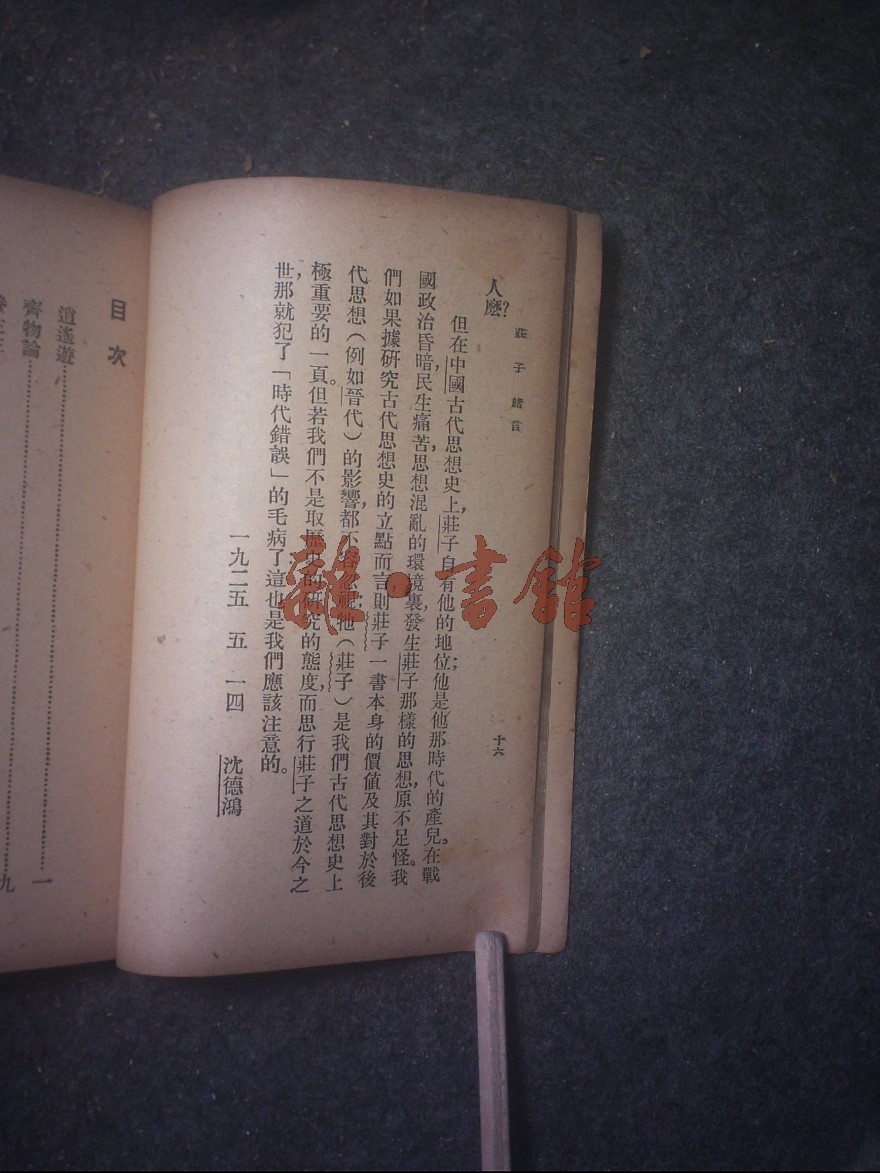 莊子緒言
十六
人麽?
但在中國古代思想史上,莊子自有他的地位;他是他那時代的產兒。在戰
國政治昏暗,民生痛苦,思想混亂的環境裏,發生莊子那樣的思想,原不足怪。我
們如果據研究古代思想史的立點而言,則莊子一書本身的價值及其對於後
代思想(例如晉代)的影響,都不容忽視;牠(莊子)是我們古代思想史上
極重要的一頁。但若我們不是取歷史的研究的態度,而思行莊子之道於今之
世,那就犯了「時代錯誤」的毛病了,這也是我們應該注意的。
一九二五 五 一四 沈德鴻
目次
逍遙遊 一
齊物論 九
雜·書館